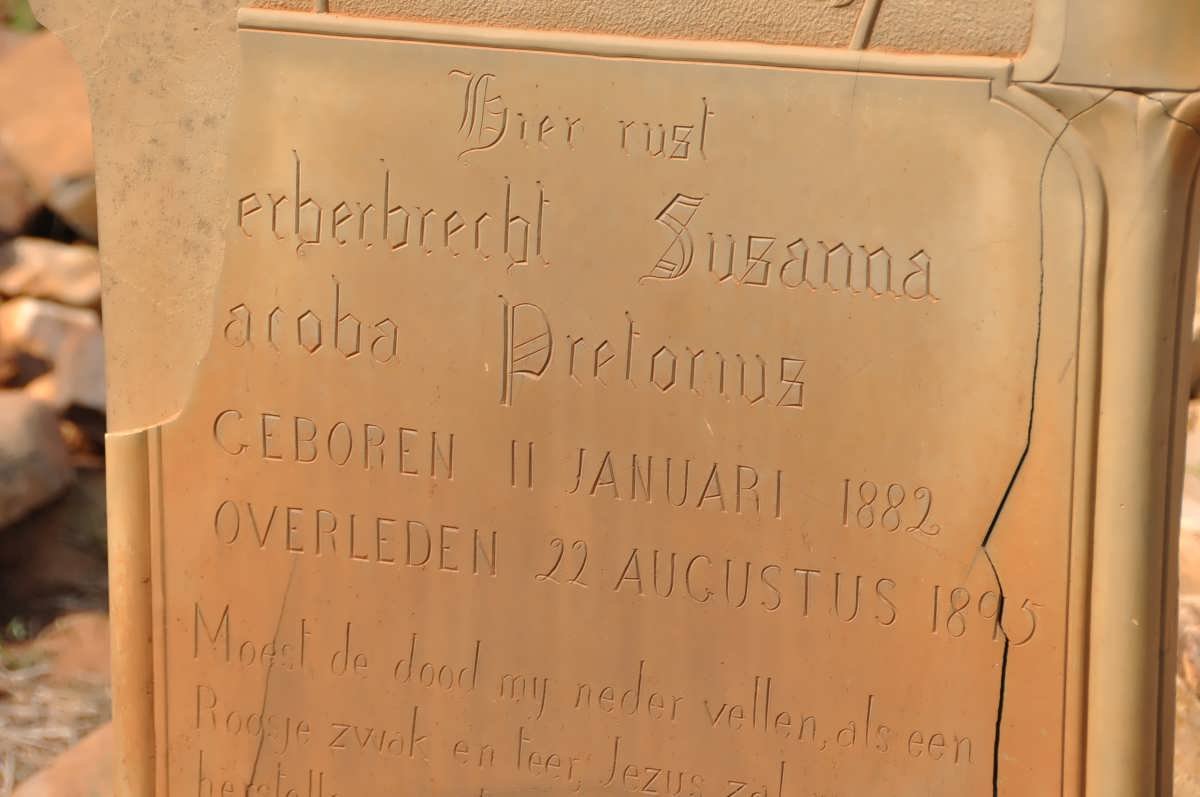 Hier rust
erberbrecht Susanna
acoba Pretorius
GEBOREN 11 JANUARI 1882
OVERLEDEN 22 AUGUSTUS 1895
Moest de dood my neder vellen, als een
Roosje zwak en teer, Jezus zal